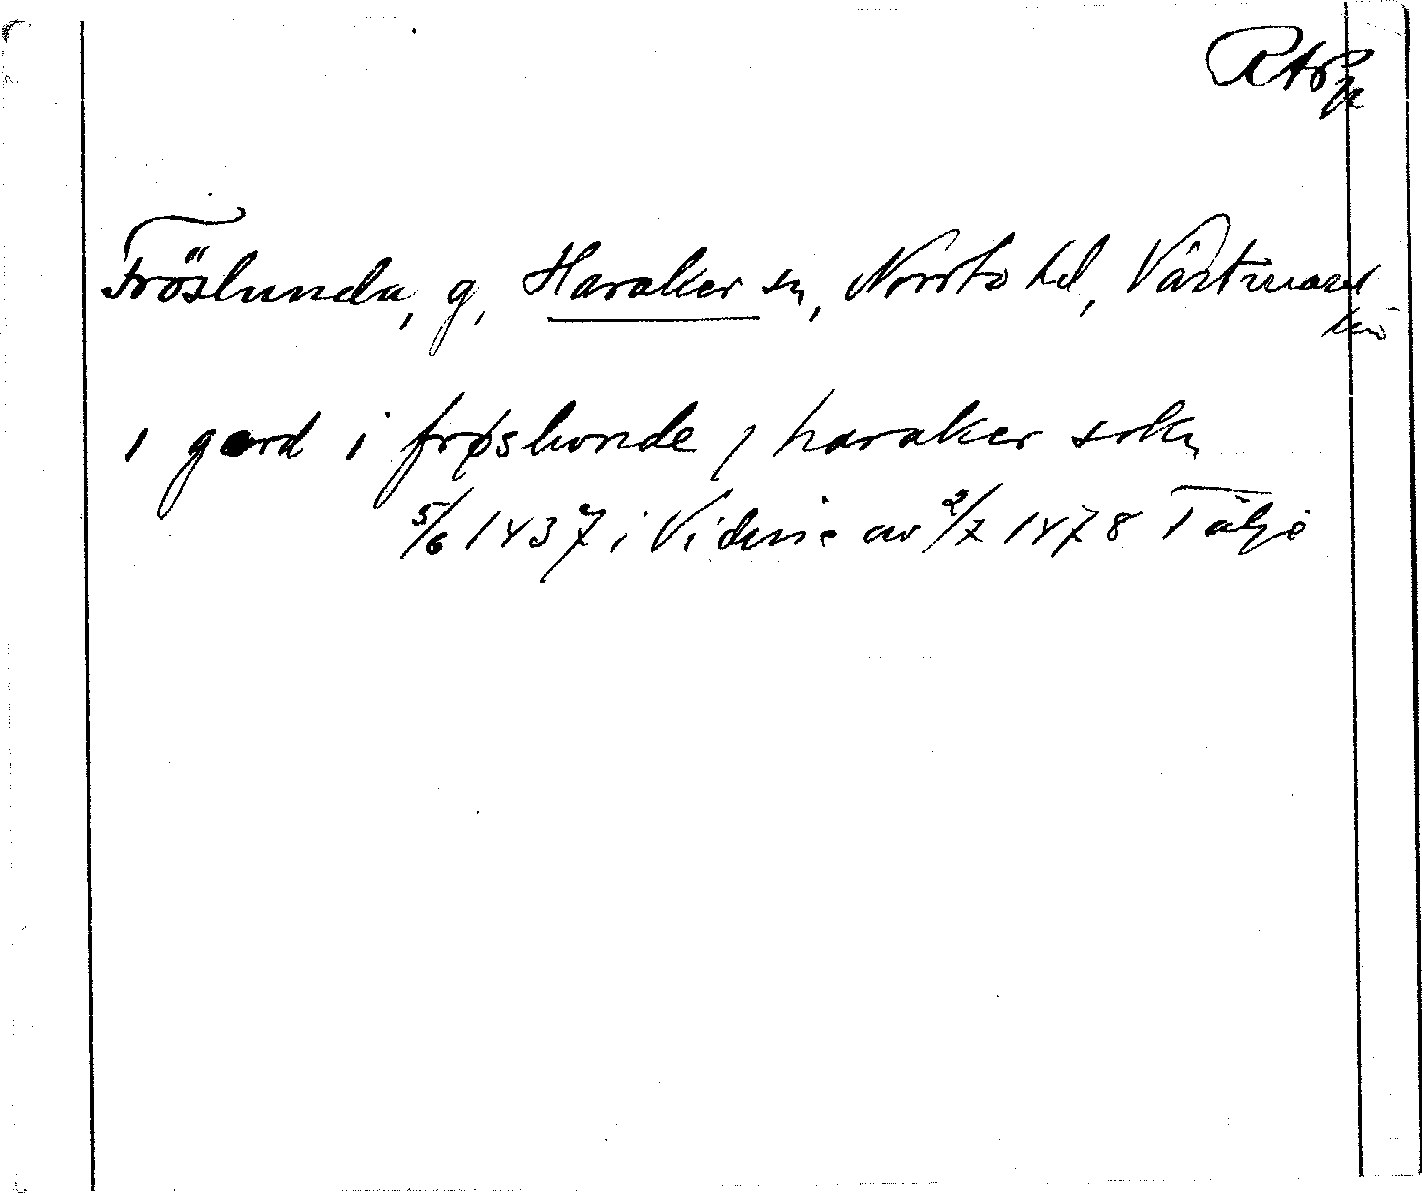 RAp
Fröslunda, g, Haraker sn, Norrbo hd, Västmanl
län
1 gard i frøslwnde j haraker sokn
5/6 1437 i Vidim av 2/7 1478 Tälje